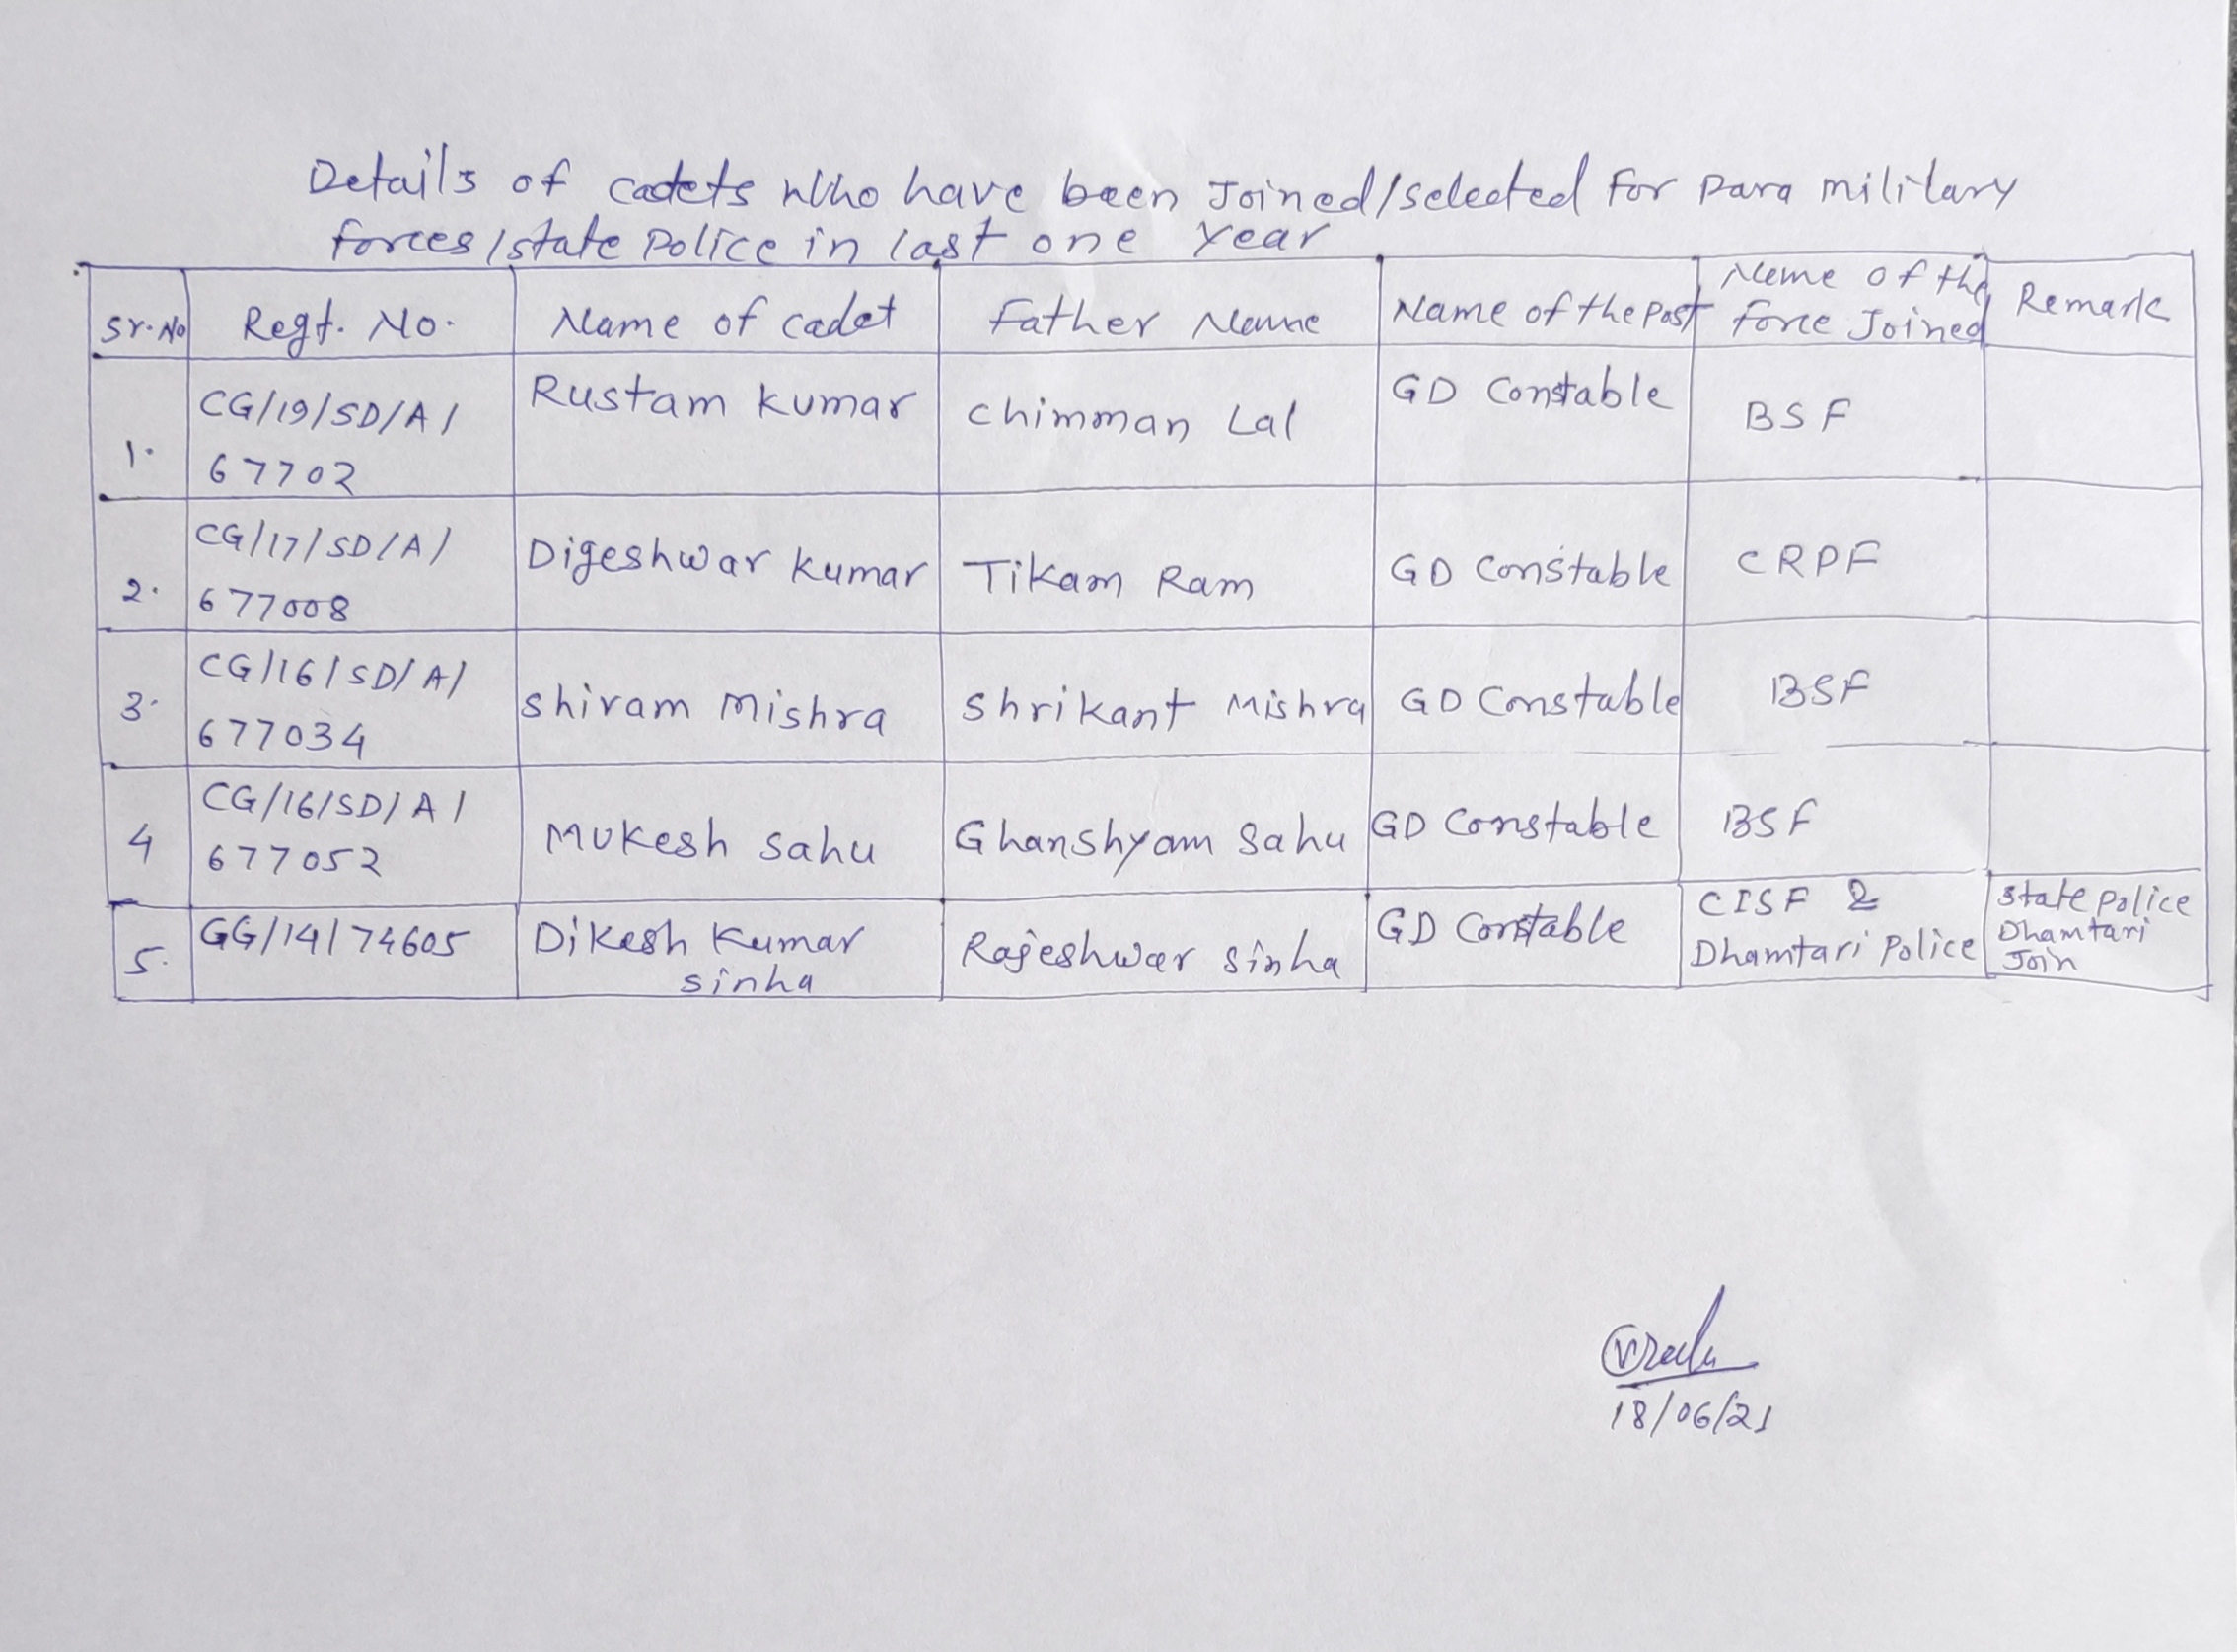 Details of cadets who have been Joined/selected For para military
forces/state police in last one year
Sr.No Regt. No. Name of cadet Father Name Name of the Post Name of the force Joined Remark
1. CG/19/SD/A/ 67702 Rustam kumar chimman Lal GD Constable BSF
2. CG/17/SD/A/ 677008 Digeshwar kumar Tikam Ram GD Constable CRPF
3. CG/16/SD/A/ 677034 shivam mishra shrikant Mishra GD Constable BSF
4 CG/16/SD/A/ 677052 Mukesh sahu Ghanshyam sahu GD Constable BSF
5. GG/14/74605 Dikesh Kumar sinha Rajeshwar sinha GD Constable CISF & Dhamtari Police state police Dhamtari Join
18/06/21